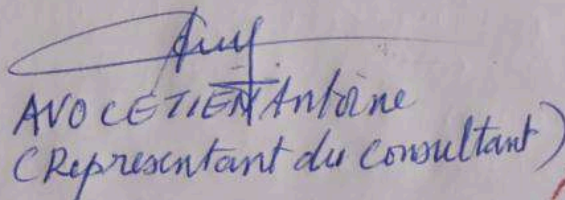 AVOCETIEN Antoine
(Représentant du Consultant)